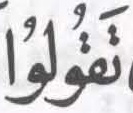 تَقُولُوا